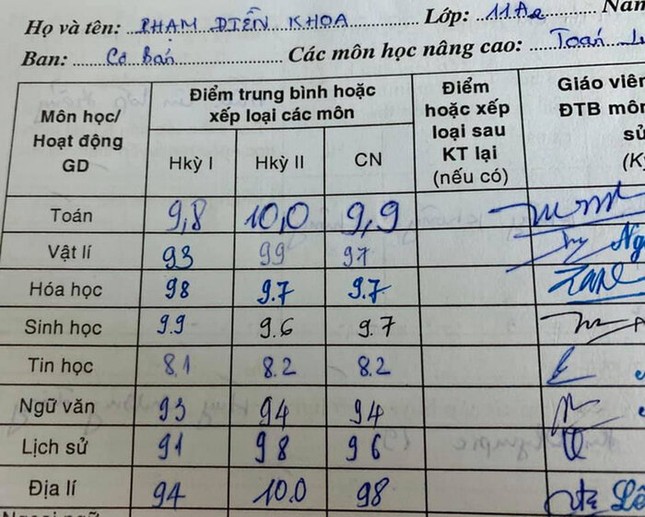 Họ và tên: PHAM DIỄN KHOA Lớp: 11A2 Năm
Ban: Cơ bản Các môn học nâng cao: Toán
Môn học/ Hoạt động GD Điểm trung bình hoặc xếp loại các môn Điểm hoặc xếp loại sau KT lại (nếu có) Giáo viên ĐTB môn
Hkỳ I Hkỳ II CN
Toán 9,8 10,0 9,9
Vật lí 93 99 97
Hóa học 98 9.7 9.7
Sinh học 9.9 9.6 9.7
Tin học 8.1 8.2 8.2
Ngữ văn 93 94 94
Lịch sử 91 98 96
Địa lí 94 10.0 98 Lê